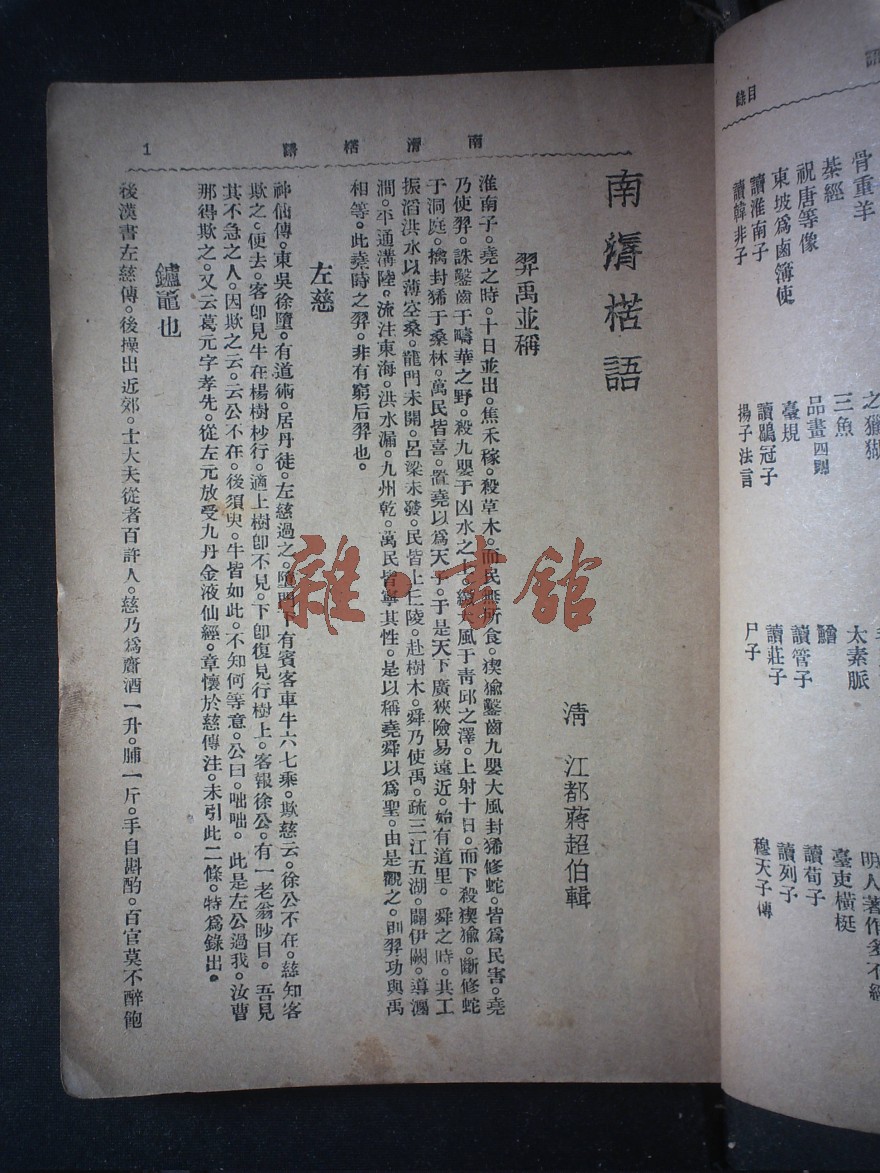 南漘楛語
1
南漘楛語
清 江都蔣超伯輯
羿禹並稱
淮南子。堯之時。十日並出。焦禾稼。殺草木。而民無所食。猰㺄鑿齒九嬰大風封豨修蛇。皆爲民害。堯
乃使羿。誅鑿齒于疇華之野。殺九嬰于凶水之上。繳大風于靑邱之澤。上射十日。而下殺猰㺄。斷修蛇
于洞庭。擒封豨于桑林。萬民皆喜。置堯以爲天子。于是天下廣狹險易遠近。始有道里。舜之時。共工
振滔洪水以薄空桑。龍門未開。呂梁未發。民皆上丘陵。赴樹木。舜乃使禹。疏三江五湖。闢伊闕。導瀍
澗。平通溝陸。流注東海。洪水漏。九州乾。萬民皆寧其性。是以稱堯舜以爲聖。由是觀之。則羿功與禹
相等。此堯時之羿。非有窮后羿也。
左慈
神仙傳。東吳徐墮。有道術。居丹徒。左慈過之。墮門下有賓客車牛六七乘。欺慈云。徐公不在。慈知客
欺之。便去。客卽見牛在楊樹杪行。適上樹卽不見。下卽復見行樹上。客報徐公。有一老翁眇目。吾見
其不急之人。因欺之云。云公不在。後須臾。牛皆如此。不知何等意。公曰。咄咄。此是左公過我。汝曹
那得欺之。又云葛元字孝先。從左元放受九丹金液仙經。章懷於慈傳注。未引此二條。特爲錄出。
鑪竈也
後漢書左慈傳。後操出近郊。士大夫從者百許人。慈乃爲齎酒一升。脯一斤。手自斟酌。百官莫不醉飽
雜·書館
目錄
骨重羊
棊經
祝唐等像
東坡爲鹵簿使
讀淮南子
讀韓非子
之獵猢
三魚
品畫四則
臺規
讀鶡冠子
揚子法言
太素脈
鱠
讀管子
讀莊子
尸子
明人著作多不經
臺吏橫梃
讀荀子
讀列子
穆天子傳